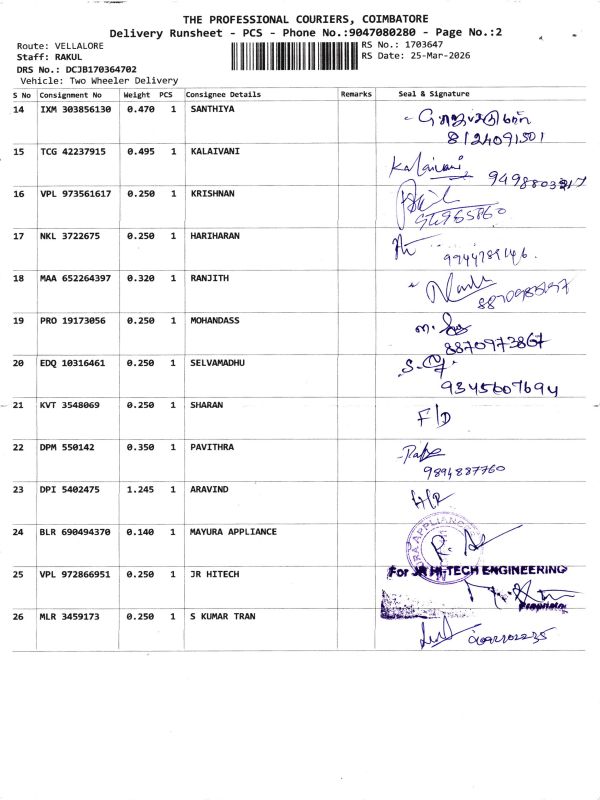 THE PROFESSIONAL COURIERS, COIMBATORE
Delivery Runsheet - PCS - Phone No.:9047080280 - Page No.:2
Route: VELLALORE
RS No.: 1703647
Staff: RAKUL
RS Date: 25-Mar-2026
DRS No.: DCJB170364702
Vehicle: Two Wheeler Delivery
S No Consignment No Weight PCS Consignee Details Remarks Seal & Signature
14 IXM 303856130 0.470 1 SANTHIYA
8124091501
15 TCG 42237915 0.495 1 KALAIVANI Kalaivani
16 VPL 973561617 0.250 1 KRISHNAN
17 NKL 3722675 0.250 1 HARIHARAN
9944789146
18 MAA 652264397 0.320 1 RANJITH
19 PRO 19173056 0.250 1 MOHANDASS
8870973867
20 EDQ 10316461 0.250 1 SELVAMADHU
9345607694
21 KVT 3548069 0.250 1 SHARAN F/D
22 DPM 550142 0.350 1 PAVITHRA
9894887760
23 DPI 5402475 1.245 1 ARAVIND
24 BLR 690494370 0.140 1 MAYURA APPLIANCE
25 VPL 972866951 0.250 1 JR HITECH For JR HI-TECH ENGINEERING
Proprietor
26 MLR 3459173 0.250 1 S KUMAR TRAN